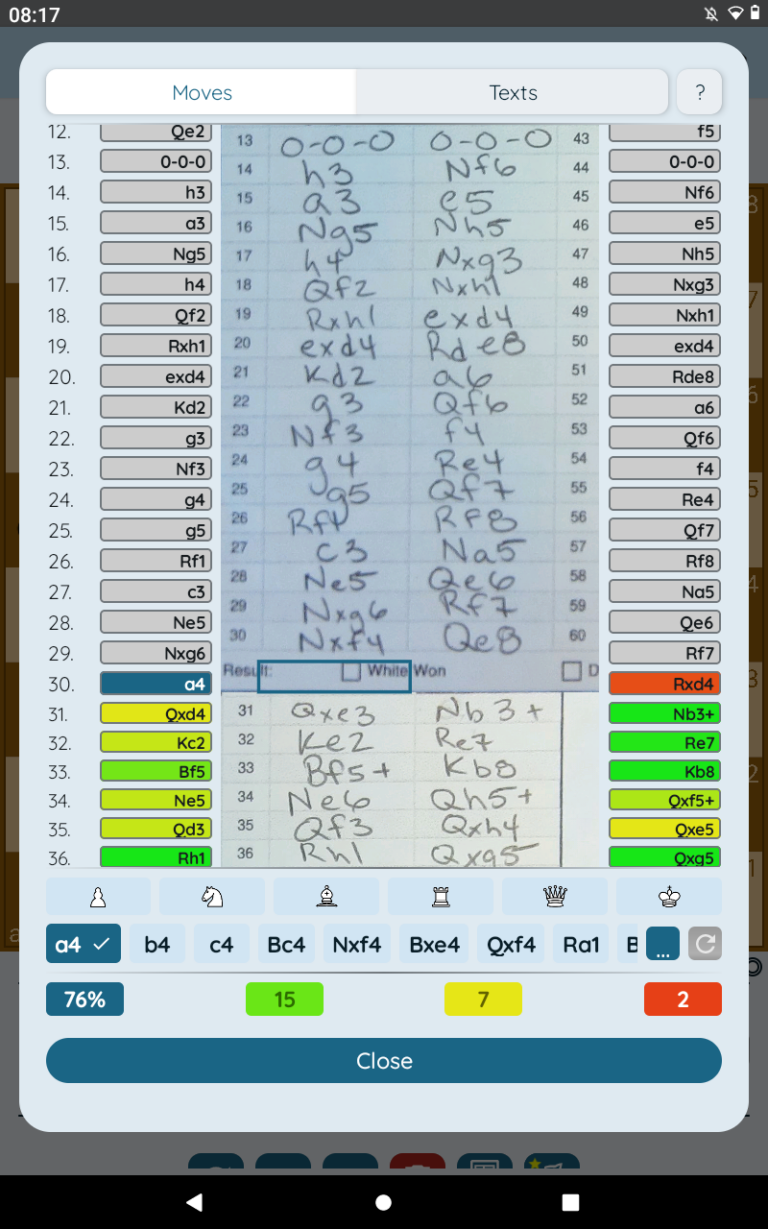 08:17
Moves Texts ?
12. Qe2 f5
13. 0-0-0 13 O-O-O O-O-O 43 0-0-0
14. h3 14 h3 Nf6 44 Nf6
15. a3 15 a3 e5 45 e5
16. Ng5 16 Ng5 Nh5 46 Nh5
17. h4 17 h4 Nxg3 47 Nxg3
18. Qf2 18 Qf2 Nxh1 48 Nxh1
19. Rxh1 19 Rxh1 exd4 49 exd4
20. exd4 20 exd4 Rde8 50 Rde8
21. Kd2 21 Kd2 a6 51 a6
22. g3 22 g3 Qf6 52 Qf6
23. Nf3 23 Nf3 f4 53 f4
24. g4 24 g4 Re4 54 Re4
25. g5 25 g5 Qf7 55 Qf7
26. Rf1 26 Rf1 Rf8 56 Rf8
27. c3 27 c3 Na5 57 Na5
28. Ne5 28 Ne5 Qe6 58 Qe6
29. Nxg6 29 Nxg6 Rf7 59 Rf7
30. a4 30 Nxf4 Qe8 60 Rxd4
Result: White Won D
31. Qxd4 31 Qxe3 Nb3+ Nb3+
32. Kc2 32 Ke2 Re7 Re7
33. Bf5 33 Bf5+ Kb8 Kb8
34. Ne5 34 Ne6 Qh5+ Qxf5+
35. Qd3 35 Qf3 Qxh4 Qxe5
36. Rh1 36 Rh1 Qxg5 Qxg5
a4 b4 c4 Bc4 Nxf4 Bxe4 Qxf4 Ra1 B ...
76% 15 7 2
Close